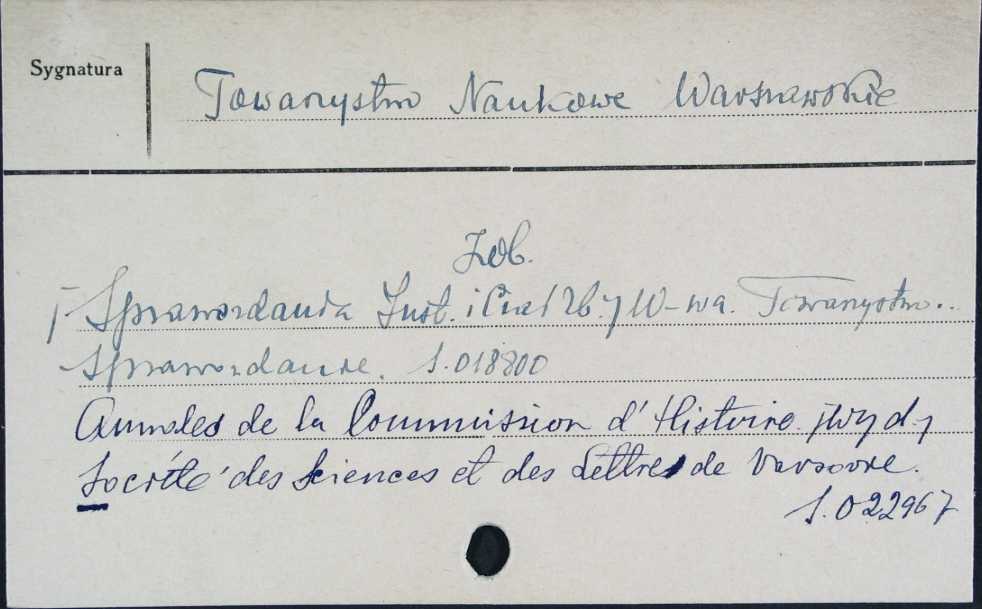 Sygnatura
Towarzystwo Naukowe Warszawskie
Zob.
Sprawozdania Inst. i W-wa. Towarzystwo..
Sprawozdanie. S.018800
Annales de la Commission d'Histoire. [Wyd.]
Société des Sciences et des Lettres de Varsovie.
S.022967